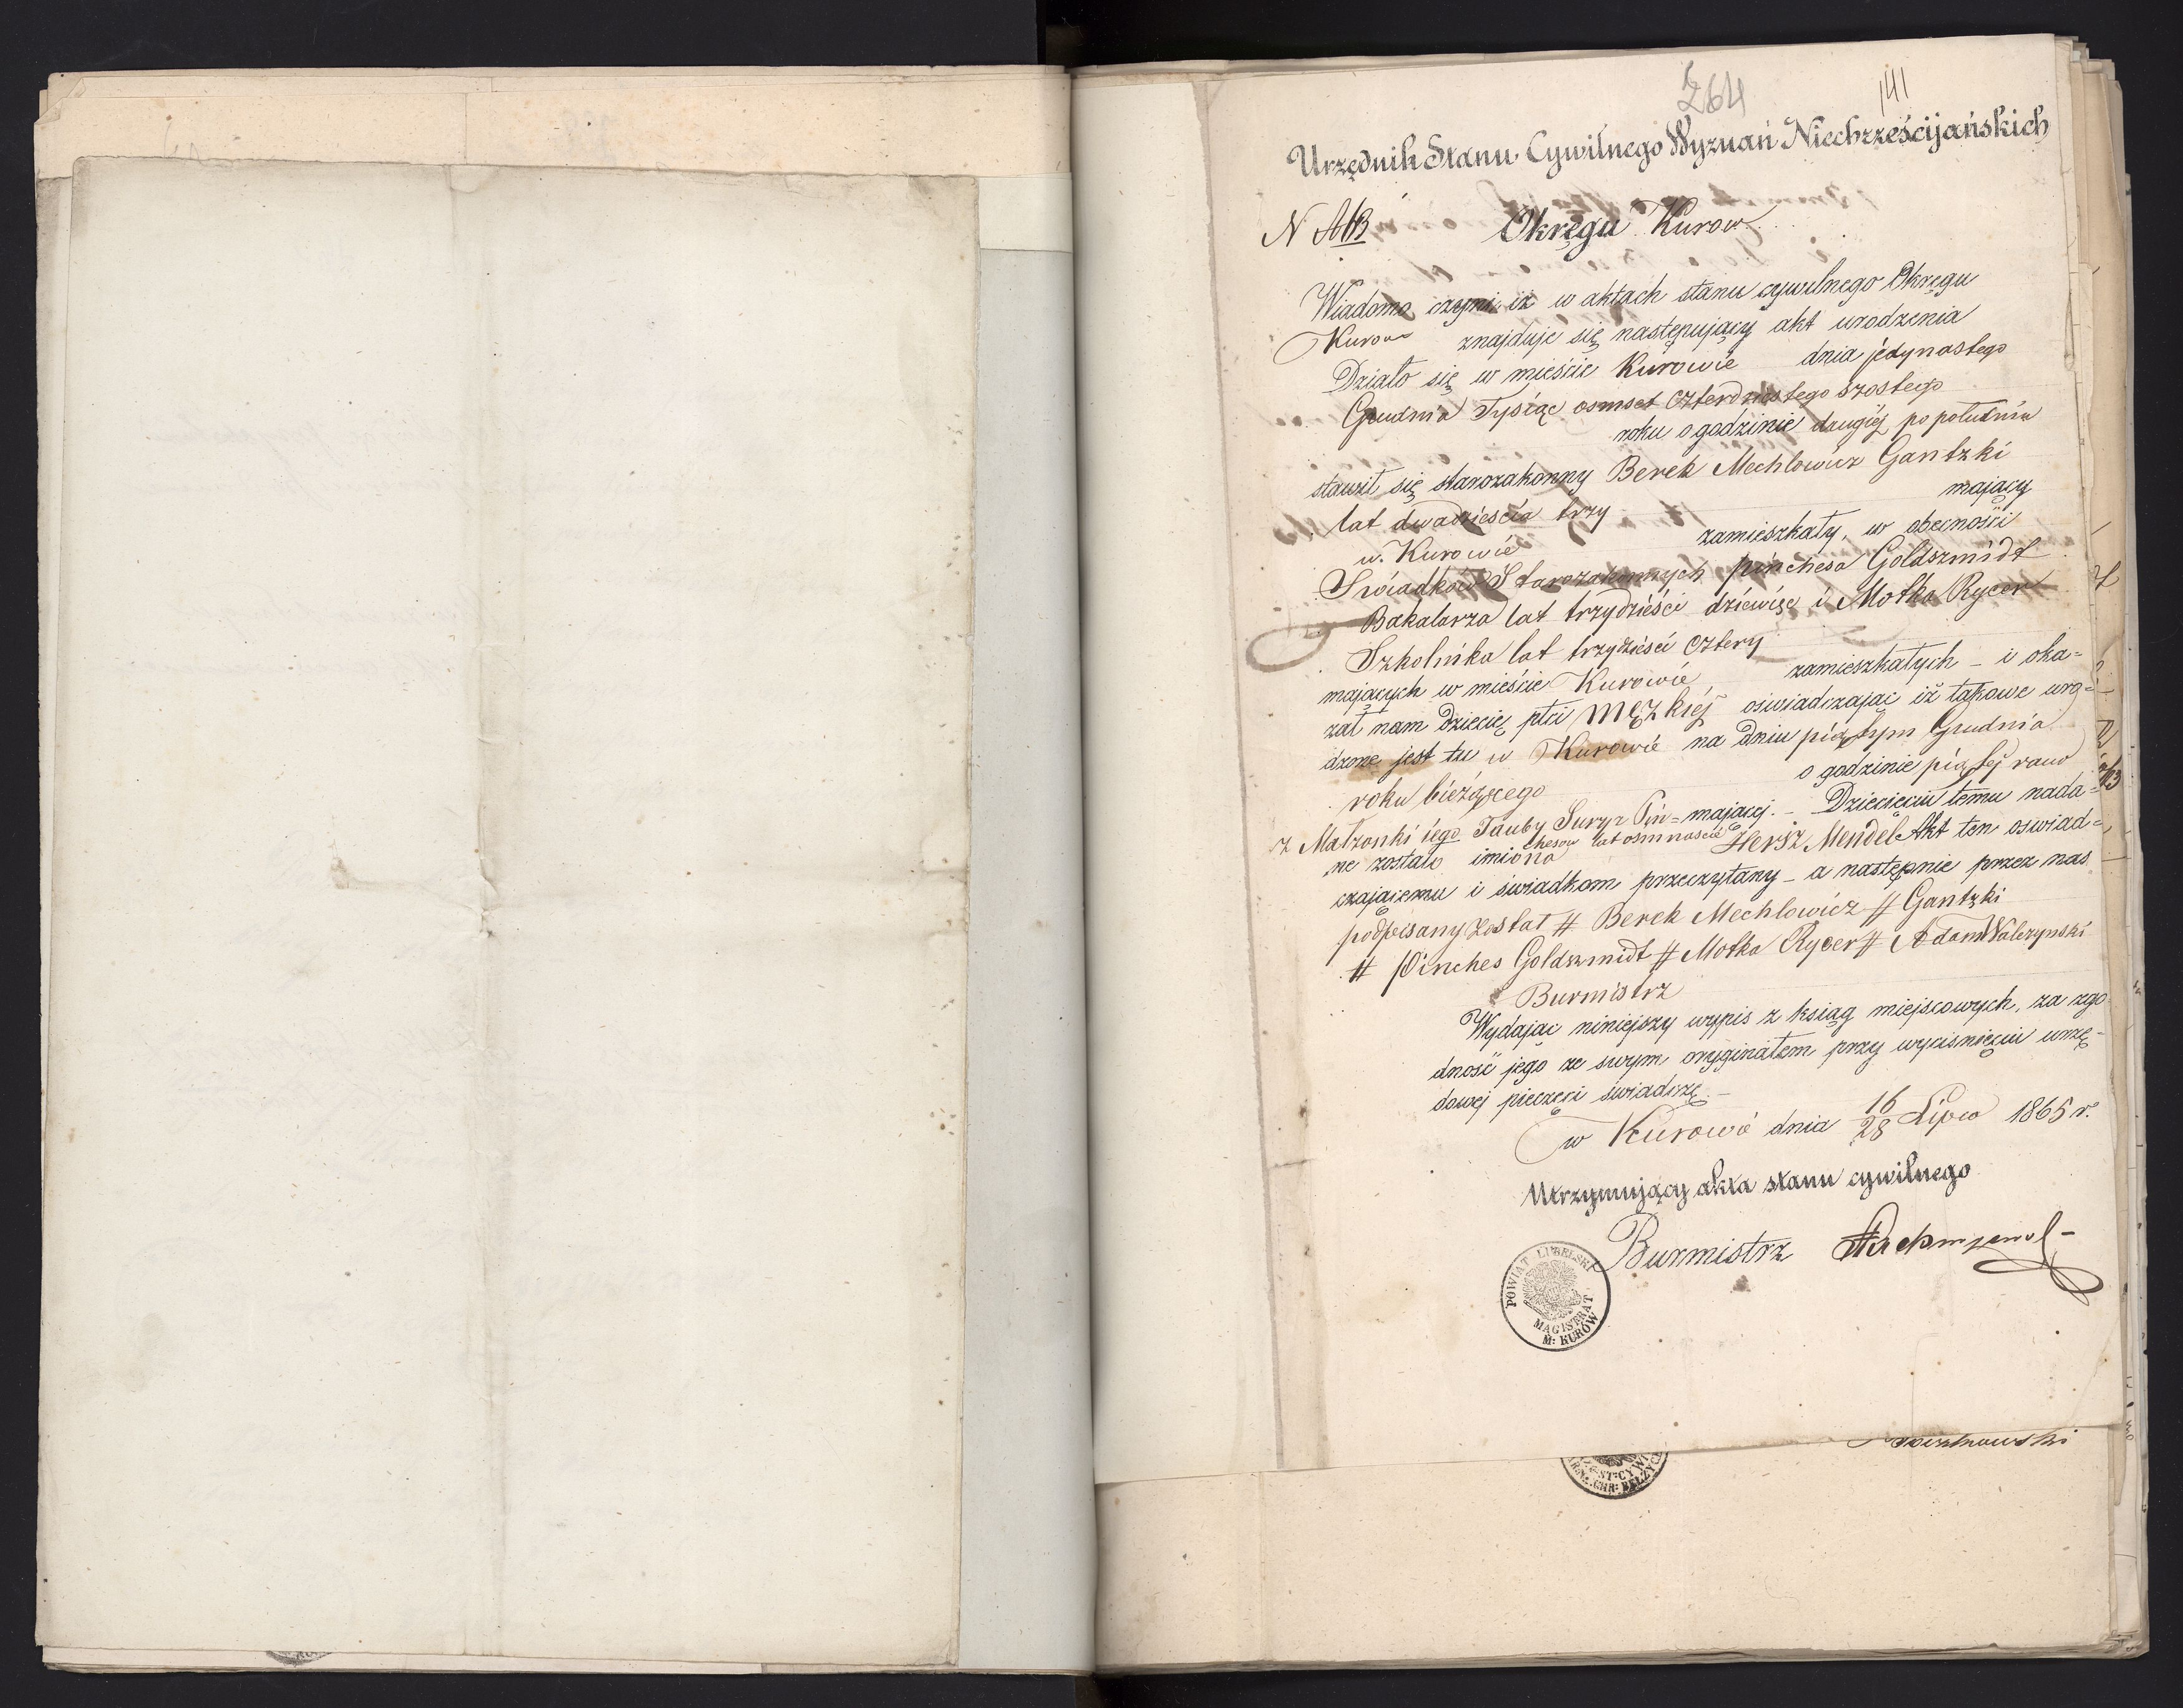 264
141
Urzędnik Stanu Cywilnego Wyznań Niechrześcijańskich
Okręgu Kurow
Wiadomo czyni iż w aktach stanu cywilnego Okręgu
Kurow znajduje się następujący akt urodzenia
Działo się w mieście Kurowie dnia jedynastego
Grudnia Tysiąc osmset czterdziestego szostego
roku o godzinie drugiéj po południu
stawił się starozakonny Berek Mechlowicz Gantzki
mający
lat dwadzieścia trzy
w Kurowie zamieszkały, w obecności
Swiadków Starozakonnych Pinchesa Goldszmidt
Bakalarza lat trzydzieści dziewięc i Motka Rycer
Szkolnika lat trzydzieści cztery
mających w mieście Kurowie zamieszkałych – i oka=
zał nam dziecię płci męzkiéj oświadczając iż takowe uro=
dzone jest tu w Kurowie na dniu piątym Grudnia
roku bieżącego o godzinie piątej rano
z Małżonki iego Tauby Sury z Pin= mającej. – Dziecięciu temu nada=
chesow lat osmnaście
ne zostało imiona Hersz Mendel Akt ten oswiad=
czającemu i świadkom przeczytany – a następnie przez nas
podpisany został # Berek Mechlowicz # Gantzki
# Pinches Goldszmidt # Motka Rycer # Adam Walczynski
Burmistrz
Wydając niniejszy wypis z ksiąg miejscowych, za zgo
dność jego ze swym oryginałem przy wyciśnięciu urzę=
dowej pieczęci świadczę –
w Kurowie dnia 16/28 Lipca 1865 r.
Utrzymujący akta stanu cywilnego
Burmistrz
POWIAT LUBELSKI
MAGISTRAT
M: KURÓW